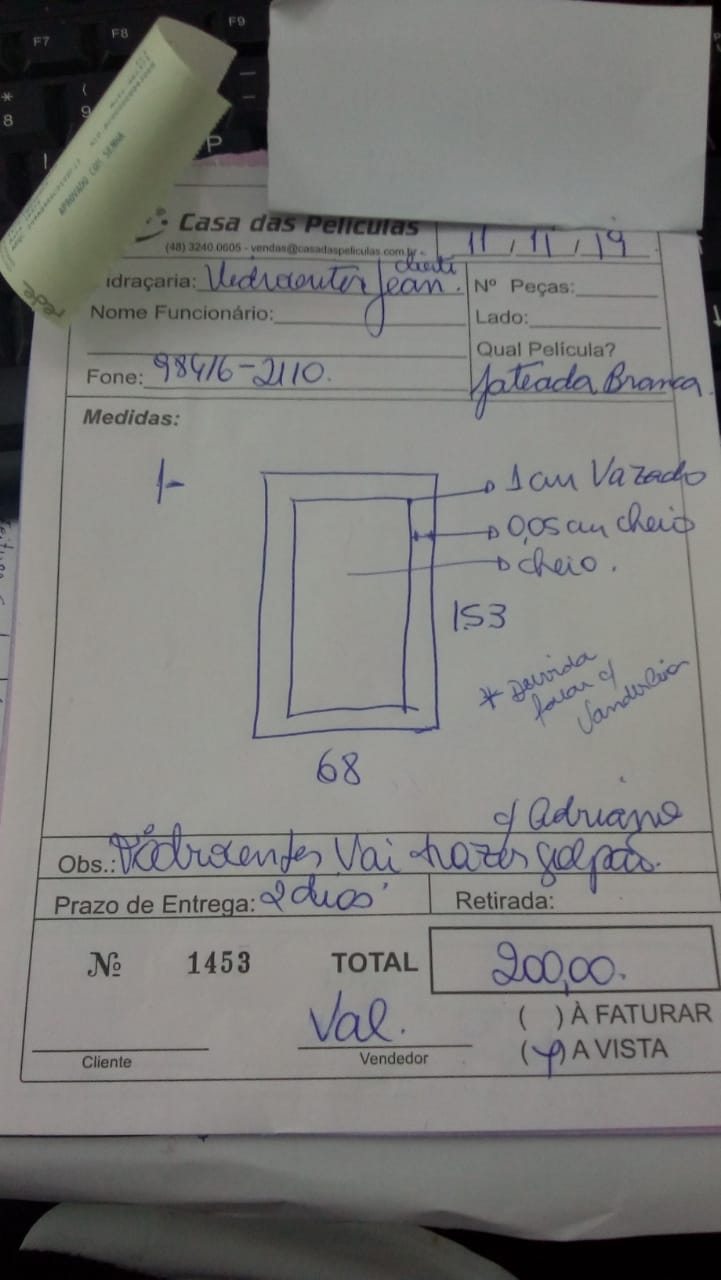 F7
F8
F9
*
8
(
9
P
APROVADO COM SENHA
rede
Casa das Películas
(48) 3240.0605 - vendas@casadaspeliculas.com.br
11 / 11 / 19
idraçaria: Jean. cliente
Nº Peças:
Nome Funcionário:
Lado:
Qual Película?
Fone: 98416-2110.
Jateada Branca
Medidas:
1-
1 cm Vazado
0,05 cm cheio
cheio.
153
* Duvida
falar c/
Vanderleia
68
c/ Adriano
Obs.: Vai trazer galpão.
Prazo de Entrega: 2 dias
Retirada:
Nº 1453
TOTAL
200,00.
Val.
( ) À FATURAR
( ) A VISTA
Cliente
Vendedor